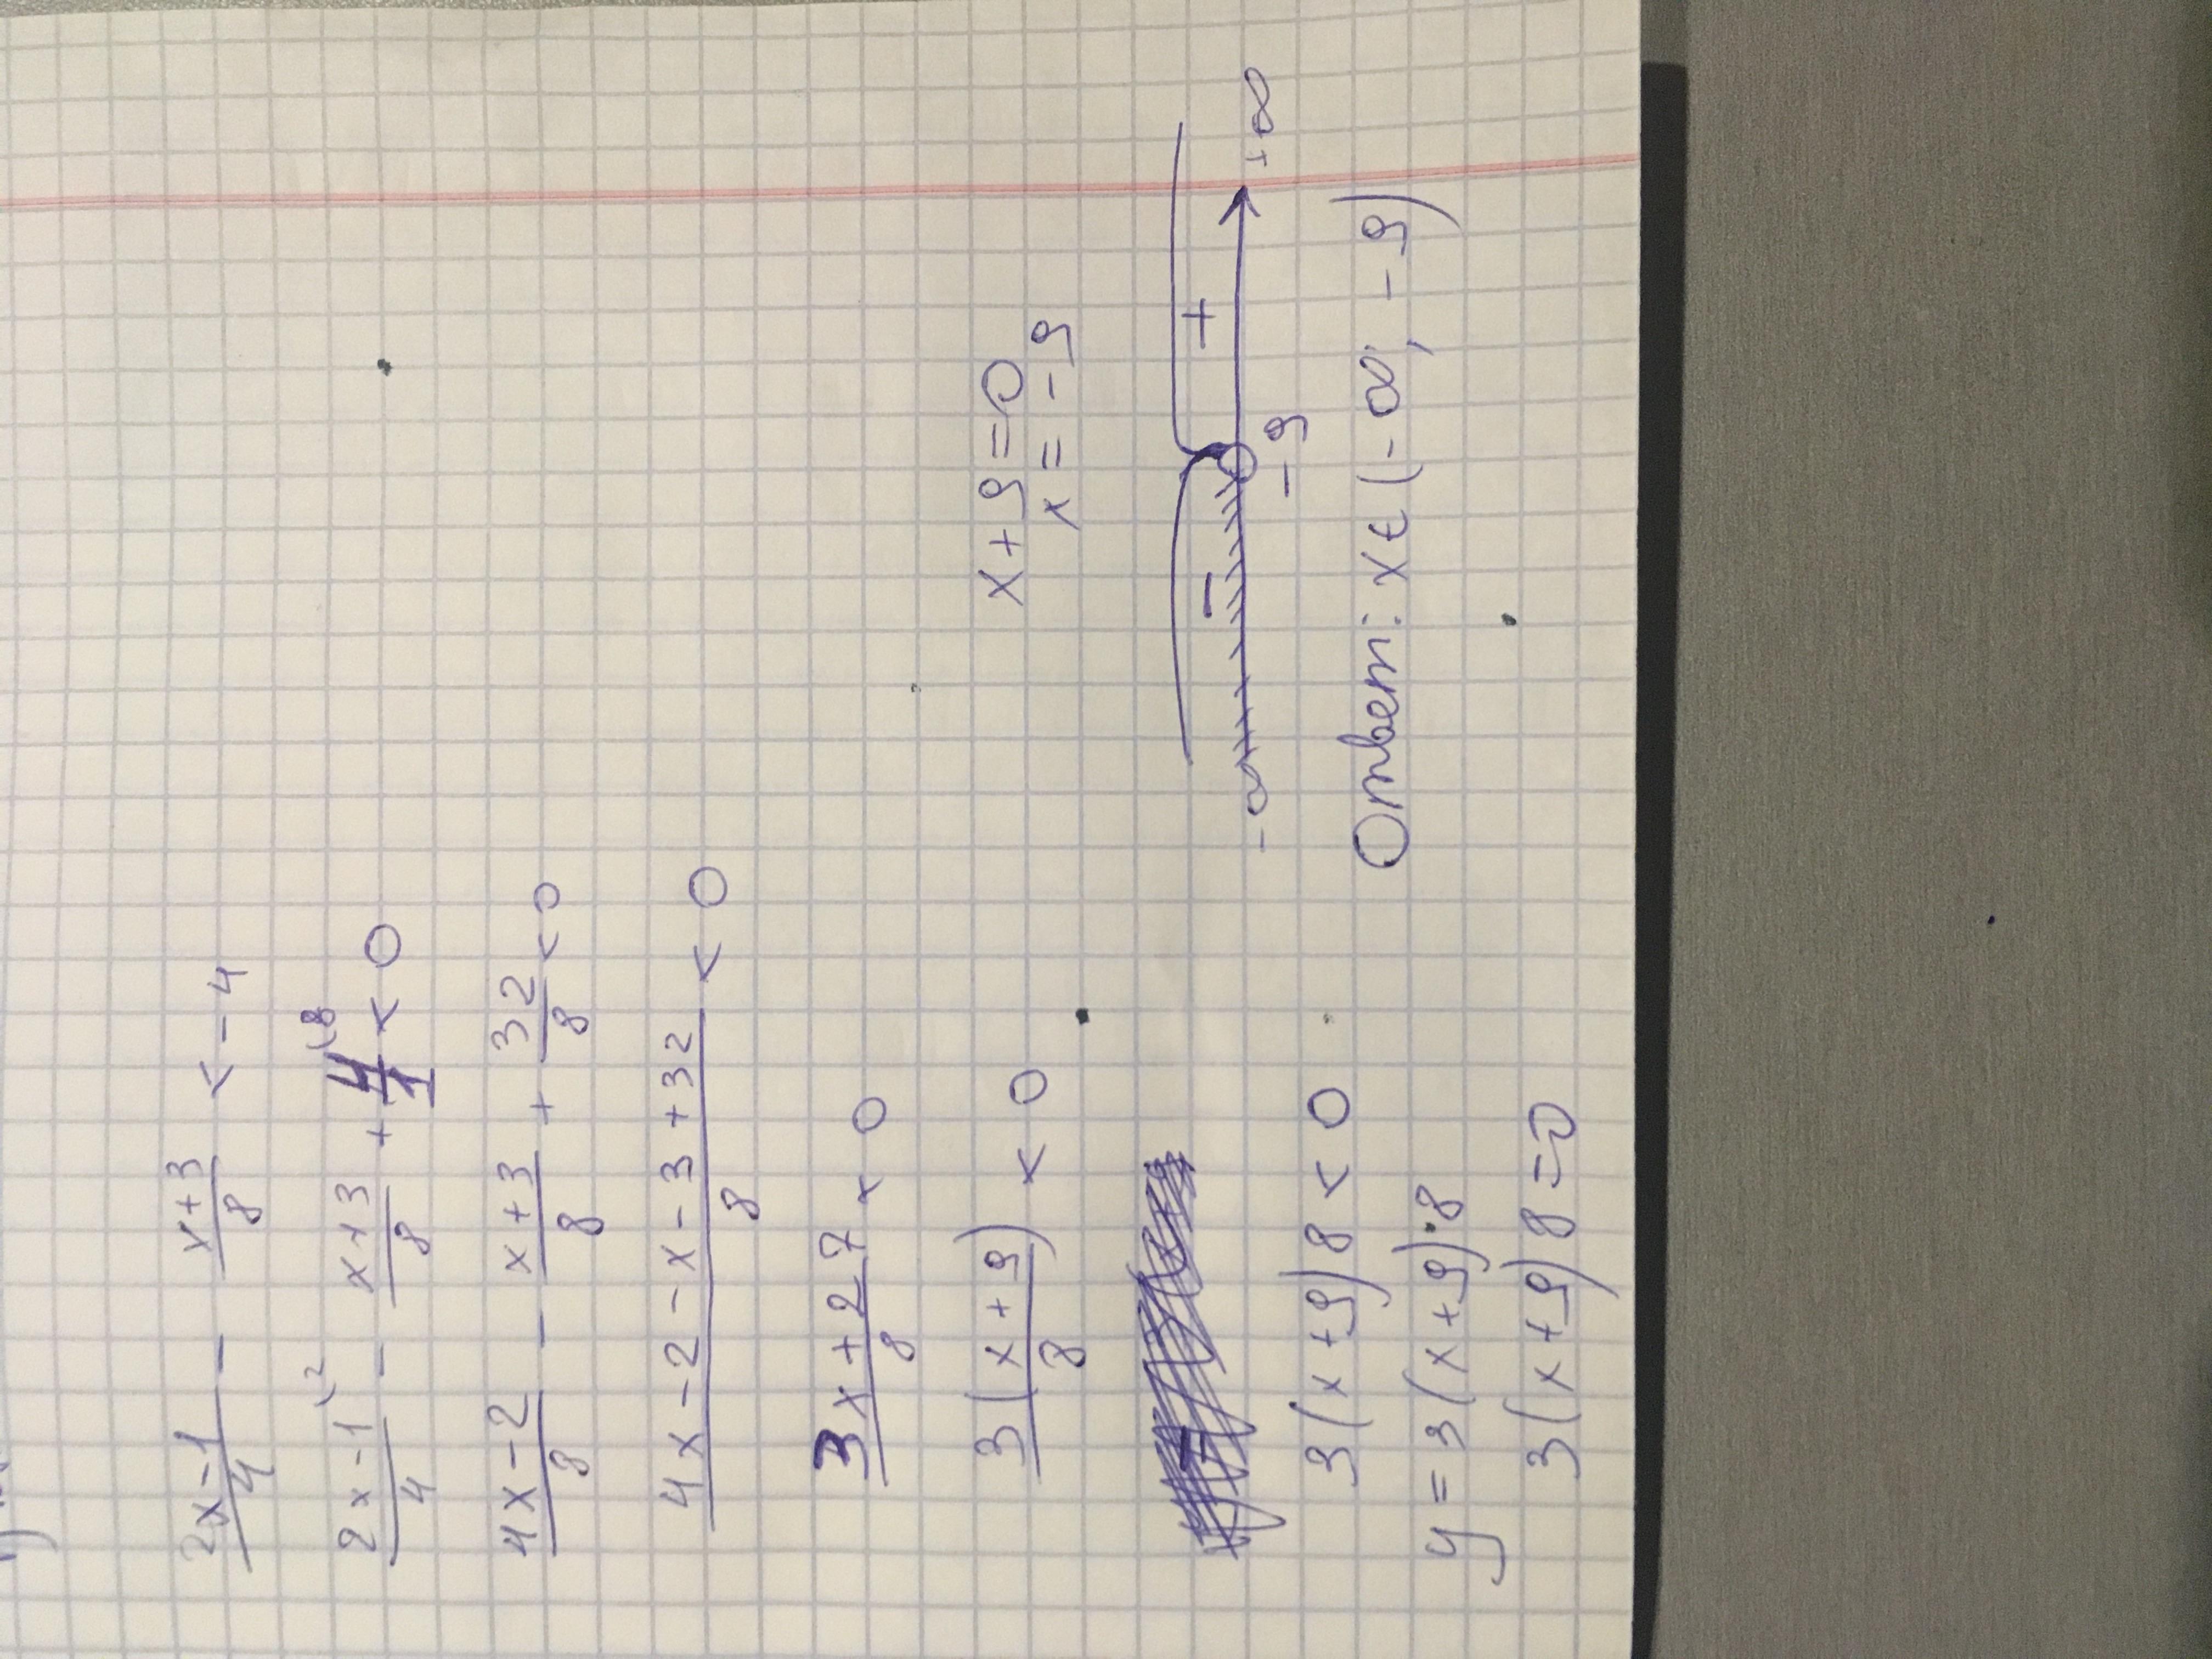 (2x-1)/4 - (x+3)/8 < -4
(2x-1)/4 \2 - (x+3)/8 + 4/1 \8 < 0
(4x-2)/8 - (x+3)/8 + 32/8 < 0
(4x-2-x-3+32)/8 < 0
(3x+27)/8 < 0
3(x+9)/8 < 0
3(x+9)8 < 0
y = 3(x+9)·8
3(x+9)8=0
x+9=0
x=-9
- +
-∞ -9 +∞
Ответ: x∈(-∞; -9)